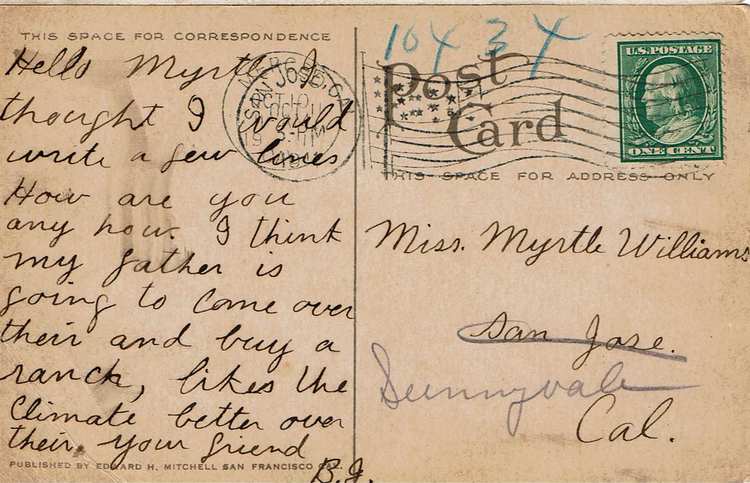 THIS SPACE FOR CORRESPONDENCE
Hello Myrtle I
thought I would
write a few lines
How are you
any how. I think
my father is
going to come over
their and buy a
ranch, likes the
Climate better over
their. your friend
B.J.
PUBLISHED BY EDWARD H. MITCHELL SAN FRANCISCO CAL.
1043 4
SAN JOSE
U.S. POSTAGE
ONE CENT
Post
Card
THIS SPACE FOR ADDRESS ONLY
Miss. Myrtle Williams
San Jose.
Sunnyvale
Cal.